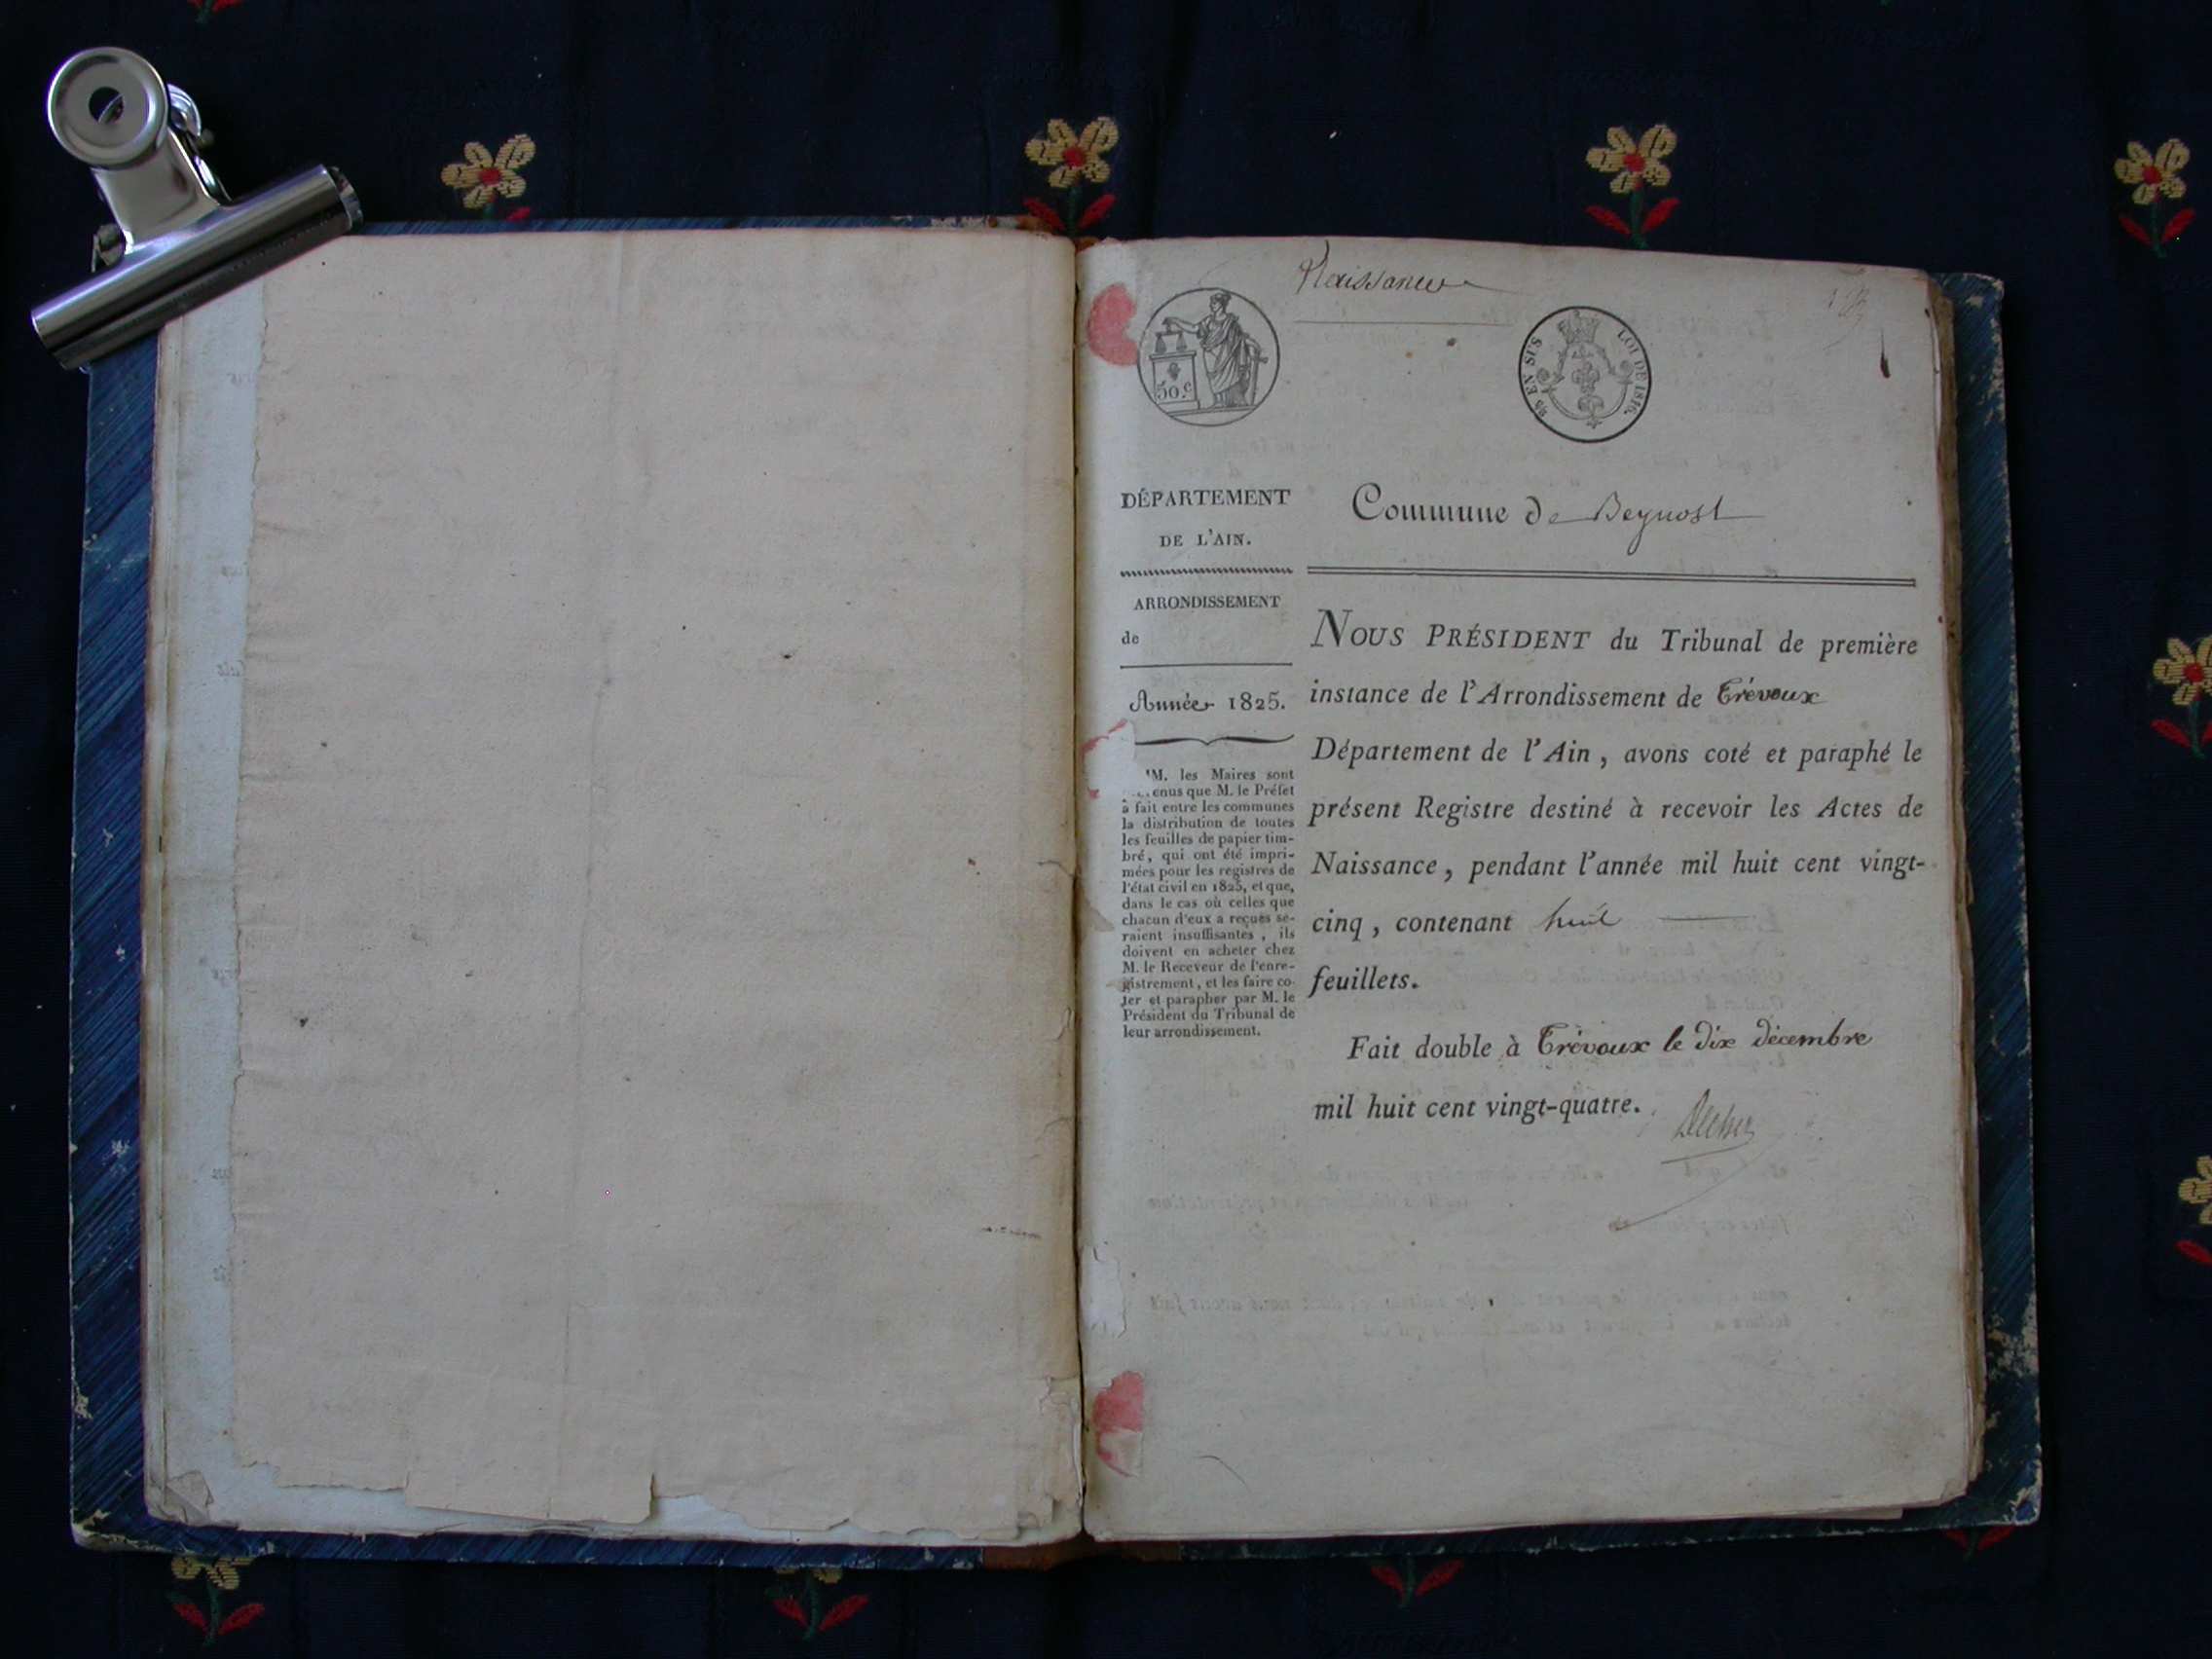 Naissance
50.c
25 EN SUS
LOI DE 1816.
DÉPARTEMENT
DE L'AIN.
ARRONDISSEMENT
de
Année 1825.
M. les Maires sont
enus que M. le Préfet
a fait entre les communes
la distribution de toutes
les feuilles de papier tim-
bré, qui ont été impri-
mées pour les registres de
l'état civil en 1825, et que,
dans le cas où celles que
chacun d'eux a reçues se-
raient insuffisantes, ils
doivent en acheter chez
M. le Receveur de l'enre-
gistrement, et les faire co-
ter et parapher par M. le
Président du Tribunal de
leur arrondissement.
Commune de Beynost
NOUS PRÉSIDENT du Tribunal de première
instance de l'Arrondissement de Trévoux
Département de l'Ain, avons coté et paraphé le
présent Registre destiné à recevoir les Actes de
Naissance, pendant l'année mil huit cent vingt-
cinq, contenant huit
feuillets.
Fait double à Trévoux le dix décembre
mil huit cent vingt-quatre.